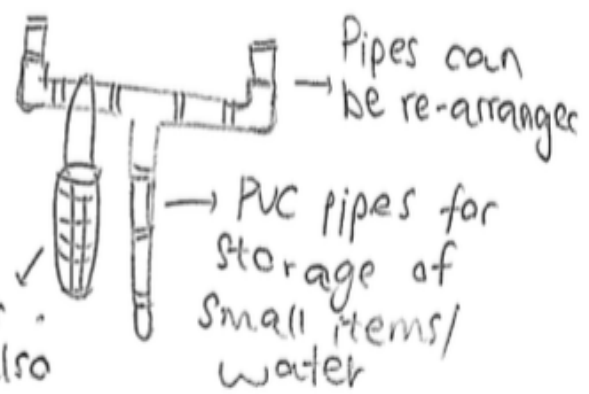 Pipes can
be re-arranged
PVC pipes for
storage of
small items/
water
lso